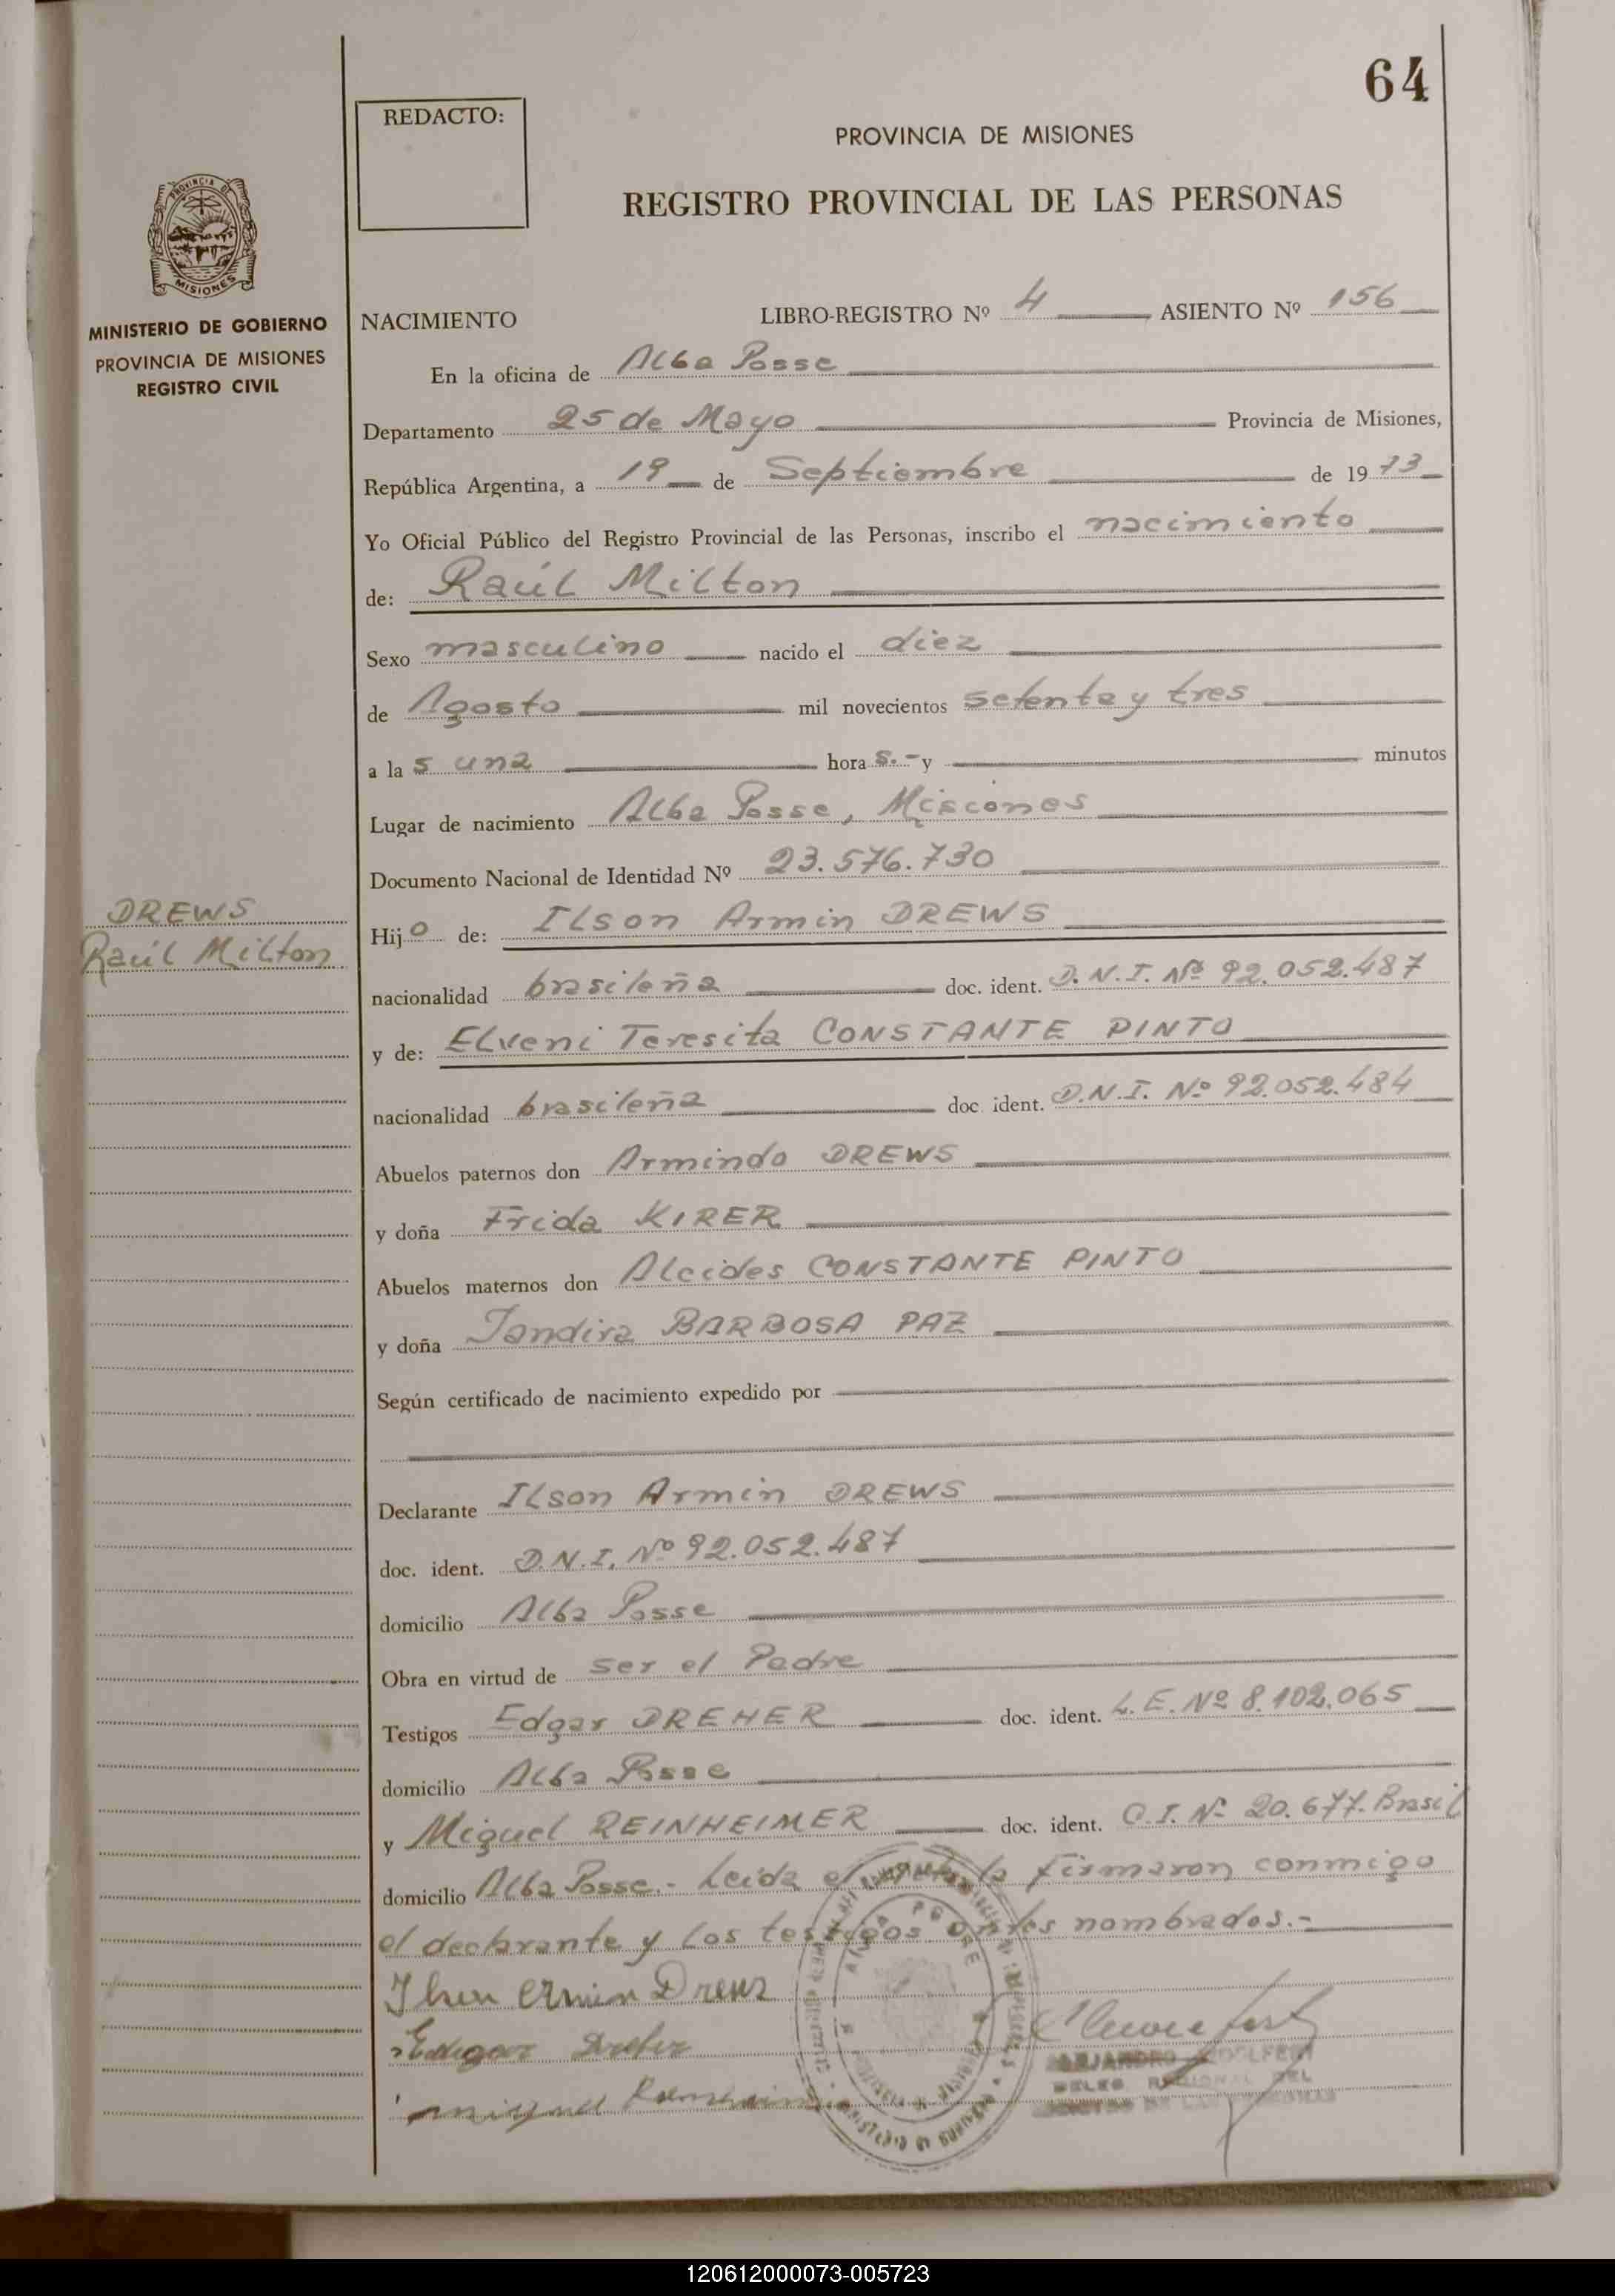 64
REDACTO:
PROVINCIA DE MISIONES
REGISTRO PROVINCIAL DE LAS PERSONAS
PROVINCIA DE
MISIONES
MINISTERIO DE GOBIERNO
PROVINCIA DE MISIONES
REGISTRO CIVIL
NACIMIENTO LIBRO-REGISTRO Nº 4 ASIENTO Nº 156
En la oficina de Alba Posse
Departamento 25 de Mayo Provincia de Misiones,
República Argentina, a 19 de Septiembre de 19 73
Yo Oficial Público del Registro Provincial de las Personas, inscribo el nacimiento
de: Raúl Milton
Sexo masculino nacido el diez
de Agosto mil novecientos setenta y tres
a la s una hora s.- y minutos
Lugar de nacimiento Alba Posse, Misiones
Documento Nacional de Identidad Nº 23.576.730
DREWS
Raúl Milton
Hijo de: Ilson Armin DREWS
nacionalidad brasileña doc. ident. D.N.I. Nº 92.052.487
y de: Elveni Teresita CONSTANTE PINTO
nacionalidad brasileña doc ident. D.N.I. Nº 92.052.484
Abuelos paternos don Armindo DREWS
y doña Frida KIRER
Abuelos maternos don Alcides CONSTANTE PINTO
y doña Jandira BARBOSA PAZ
Según certificado de nacimiento expedido por
Declarante Ilson Armin DREWS
doc. ident. D.N.I. Nº 92.052.487
domicilio Alba Posse
Obra en virtud de ser el Padre
Testigos Edgar DREHER doc. ident. L.E. Nº 8.102.065
domicilio Alba Posse
y Miguel REINHEIMER doc. ident. C.I. Nº 20.677. Brasil
domicilio Alba Posse.- Leida el acta la firmaron conmigo
el declarante y los testigos antes nombrados.-
Ilson Armin Drews
Edgar Dreher
Miguel
ALEJANDRO
DELEG. REGIONAL DEL
120612000073-005723